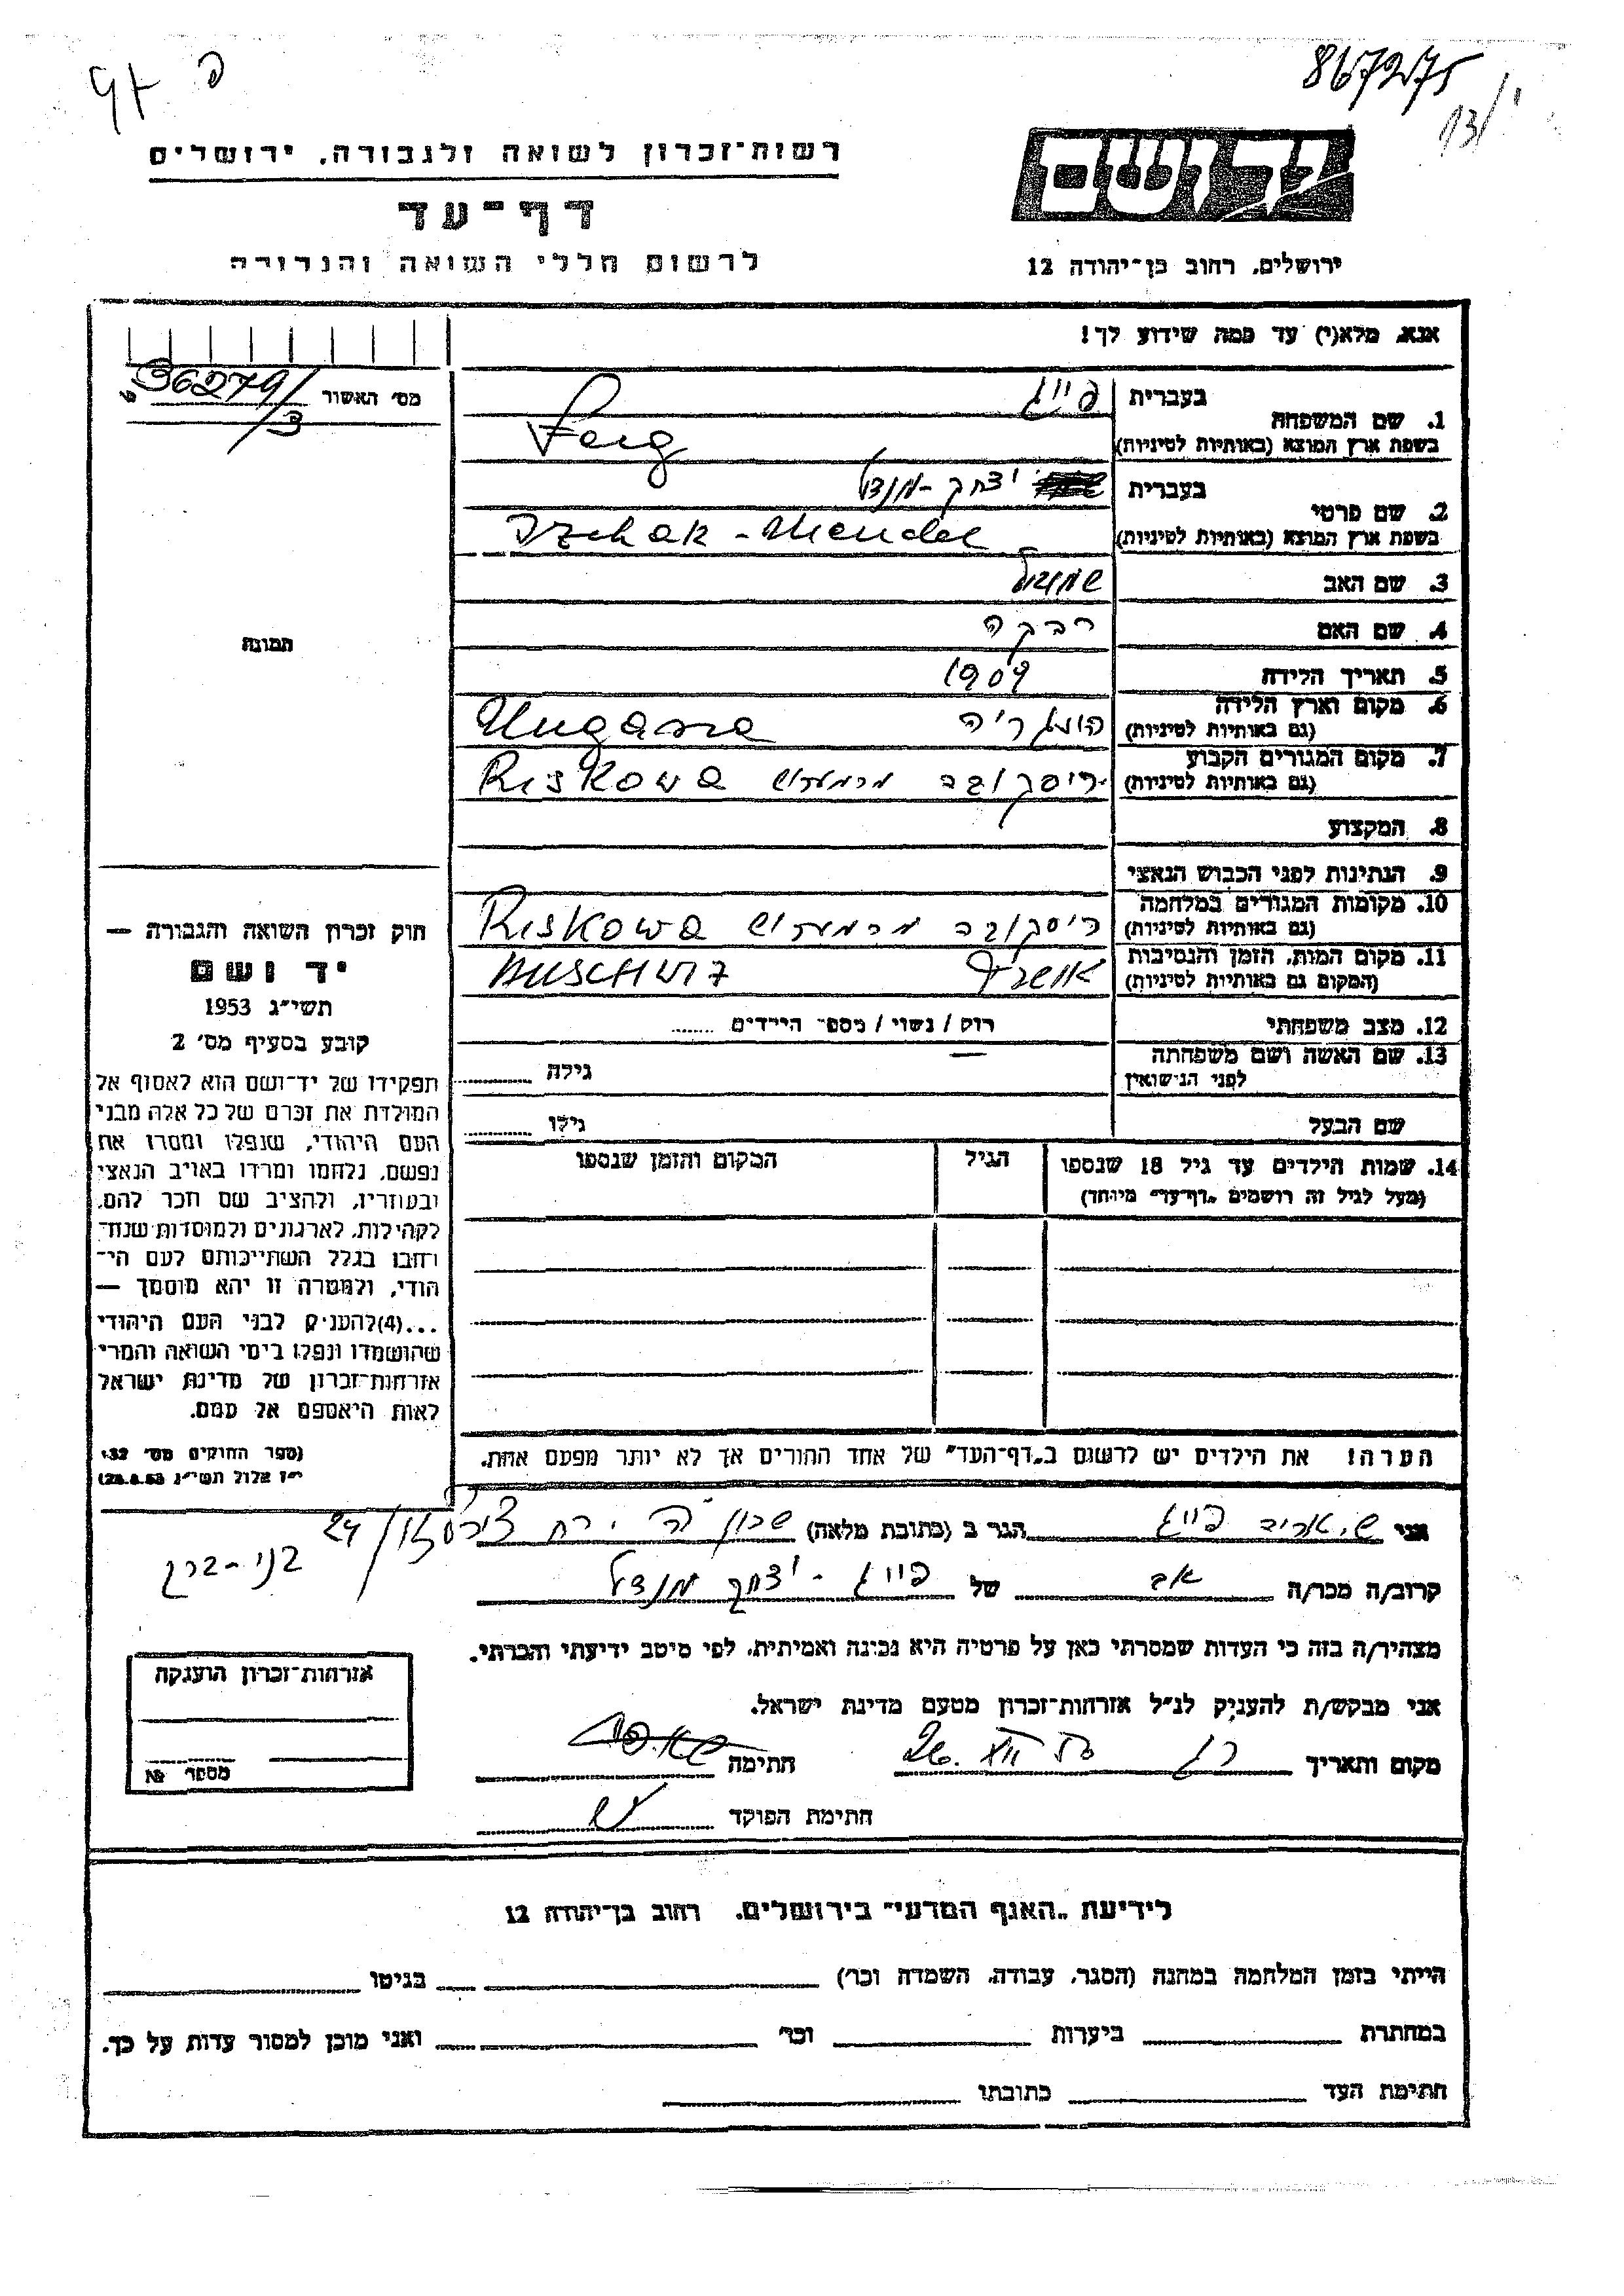 867275
13/י
פ
רשות־זכרון לשואה ולגבורה, ירושלים
דף־עד
לרשום חללי השואה והגבורה
יד ושם
ירושלים, רחוב בן־יהודה 12
אנא, מלא(י) עד כמה שידוע לך!
מס׳ האשור 36279/3
תמונה
1. שם המשפחה
בעברית פייג
בשפת ארץ המוצא (באותיות לטיניות) Feig
2. שם פרטי
בעברית יצחק - מנדל
בשפת ארץ המוצא (באותיות לטיניות) Izchak - Mendel
3. שם האב שמואל
4. שם האם רבקה
5. תאריך הלידה 1909
6. מקום וארץ הלידה
(גם באותיות לטיניות) הונגריה Ungarra
7. מקום המגורים הקבוע
(גם באותיות לטיניות) ריסקובה מרמורש Riskowa
8. המקצוע
9. הנתינות לפני הכבוש הנאצי
10. מקומות המגורים במלחמה
(גם באותיות לטיניות) ריסקובה מרמורש Riskowa
11. מקום המות, הזמן והנסיבות
(המקום גם באותיות לטיניות) אושביץ AUSCHWIZ
12. מצב משפחתי רוק / נשוי / מספר הילדים ........
13. שם האשה ושם משפחתה
לפני הנישואין גילה
שם הבעל גילו
14. שמות הילדים עד גיל 18 שנספו הגיל המקום והזמן שנספו
(מעל לגיל זה רושמים „דף־עד״ מיוחד)
הערה! את הילדים יש לרשום ב„דף־העד״ של אחד ההורים אך לא יותר מפעם אחת.
חוק זכרון השואה והגבורה —
יד ושם
תשי״ג 1953
קובע בסעיף מס׳ 2
תפקידו של יד־ושם הוא לאסוף אל
המולדת את זכרם של כל אלה מבני
העם היהודי, שנפלו ומסרו את
נפשם, נלחמו ומרדו באויב הנאצי
ובעוזריו, ולהציב שם וזכר להם,
לקהילות, לארגונים ולמוסדות שנח־
רחבו בגלל השתייכותם לעם הי־
הודי, ולמטרה זו יהא מוסמך —
...(4)להעניק לבני העם היהודי
שהושמדו ונפלו בימי השואה והמרי
אזרחות־זכרון של מדינת ישראל
לאות היאספם אל עמם.
(ספר החוקים מס׳ 132,
י״ז אלול תשי״ג 28.8.53)
אני פייג הגר ב (כתובת מלאה) שכון ה׳ 24
בני-ברק
קרוב/ה מכר/ה אב של פייג - יצחק מנדל
מצהיר/ה בזה כי העדות שמסרתי כאן על פרטיה היא נכונה ואמיתית, לפי מיטב ידיעתי והכרתי.
אני מבקש/ת להעניק לנ״ל אזרחות־זכרון מטעם מדינת ישראל.
מקום ותאריך חתימה
חתימת הפוקד
אזרחות־זכרון הוענקה
מספר №
לידיעת „האגף המדעי״ בירושלים, רחוב בן־יהודה 12
הייתי בזמן המלחמה במחנה (הסגר, עבודה, השמדה וכו׳) בגיטו
במחתרת ביערות וכו׳ ואני מוכן למסור עדות על כך.
חתימת העד כתובתו